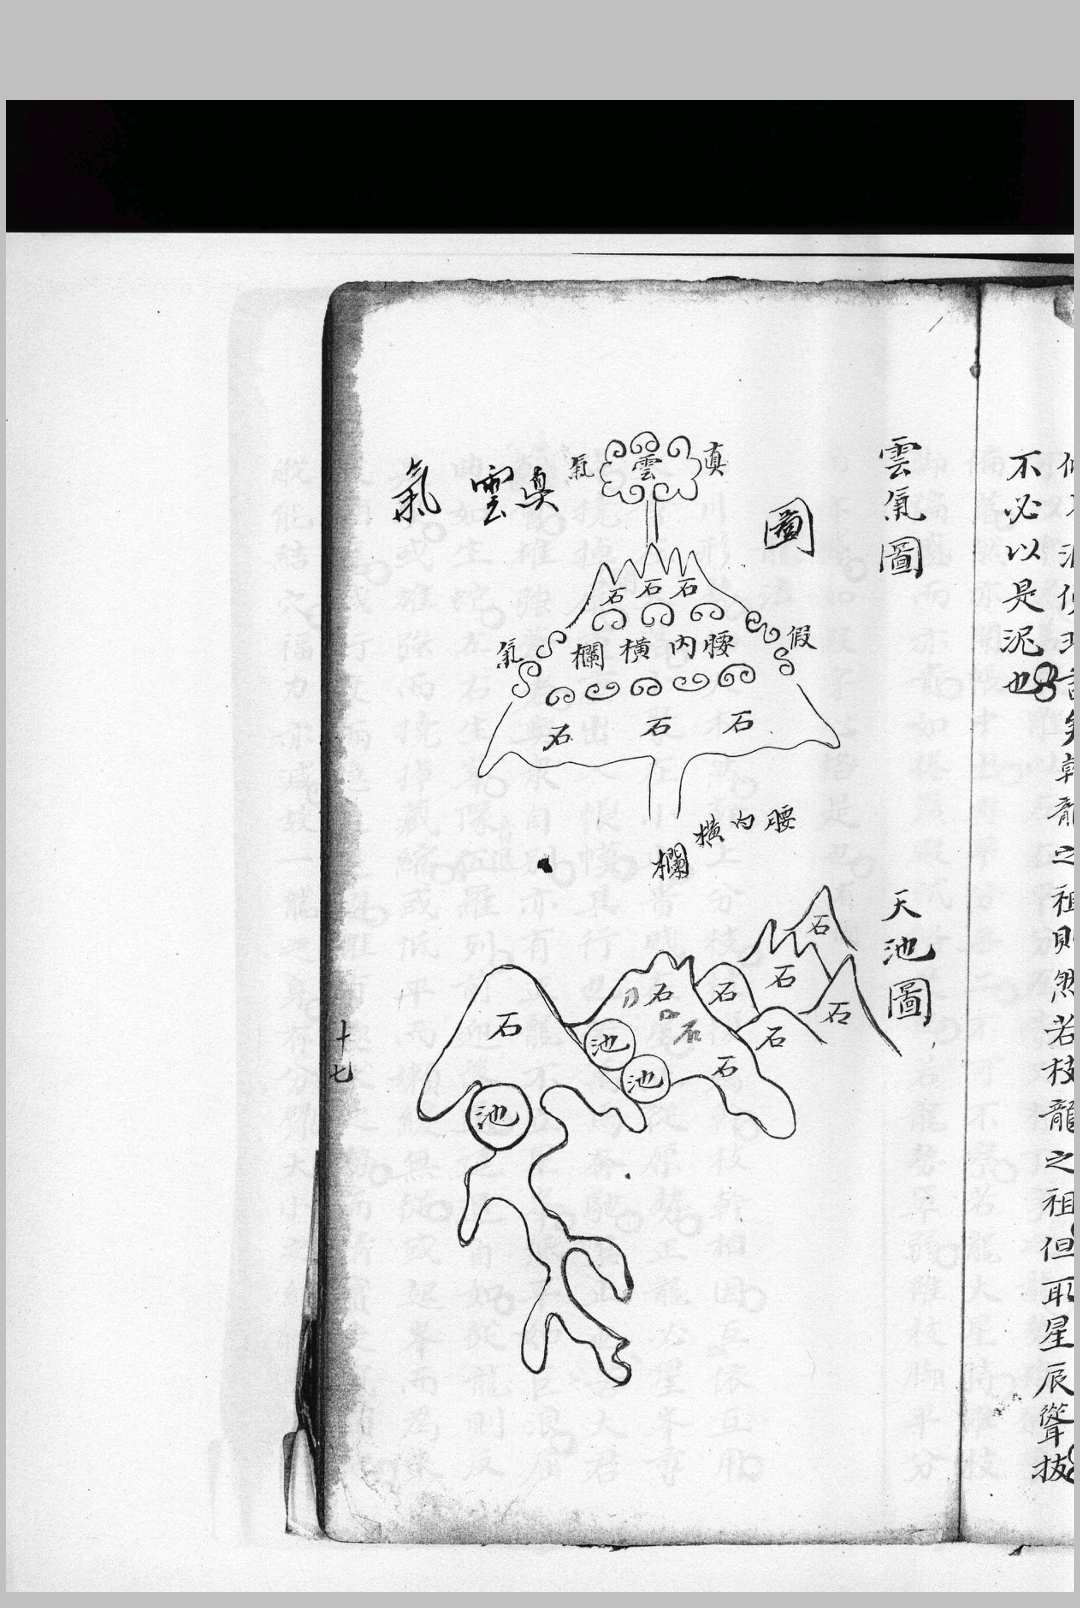 不必以是泥也
雲氣圖
圖
真雲氣
真
雲
氣
石
石
石
假
腰內橫欄
氣
石
石
石
腰內橫欄
天池圖
石
石
石
石
石
石
石
石
石
池
池
石
池
十七
之祖則然若枝龍之祖但取星辰聳拔